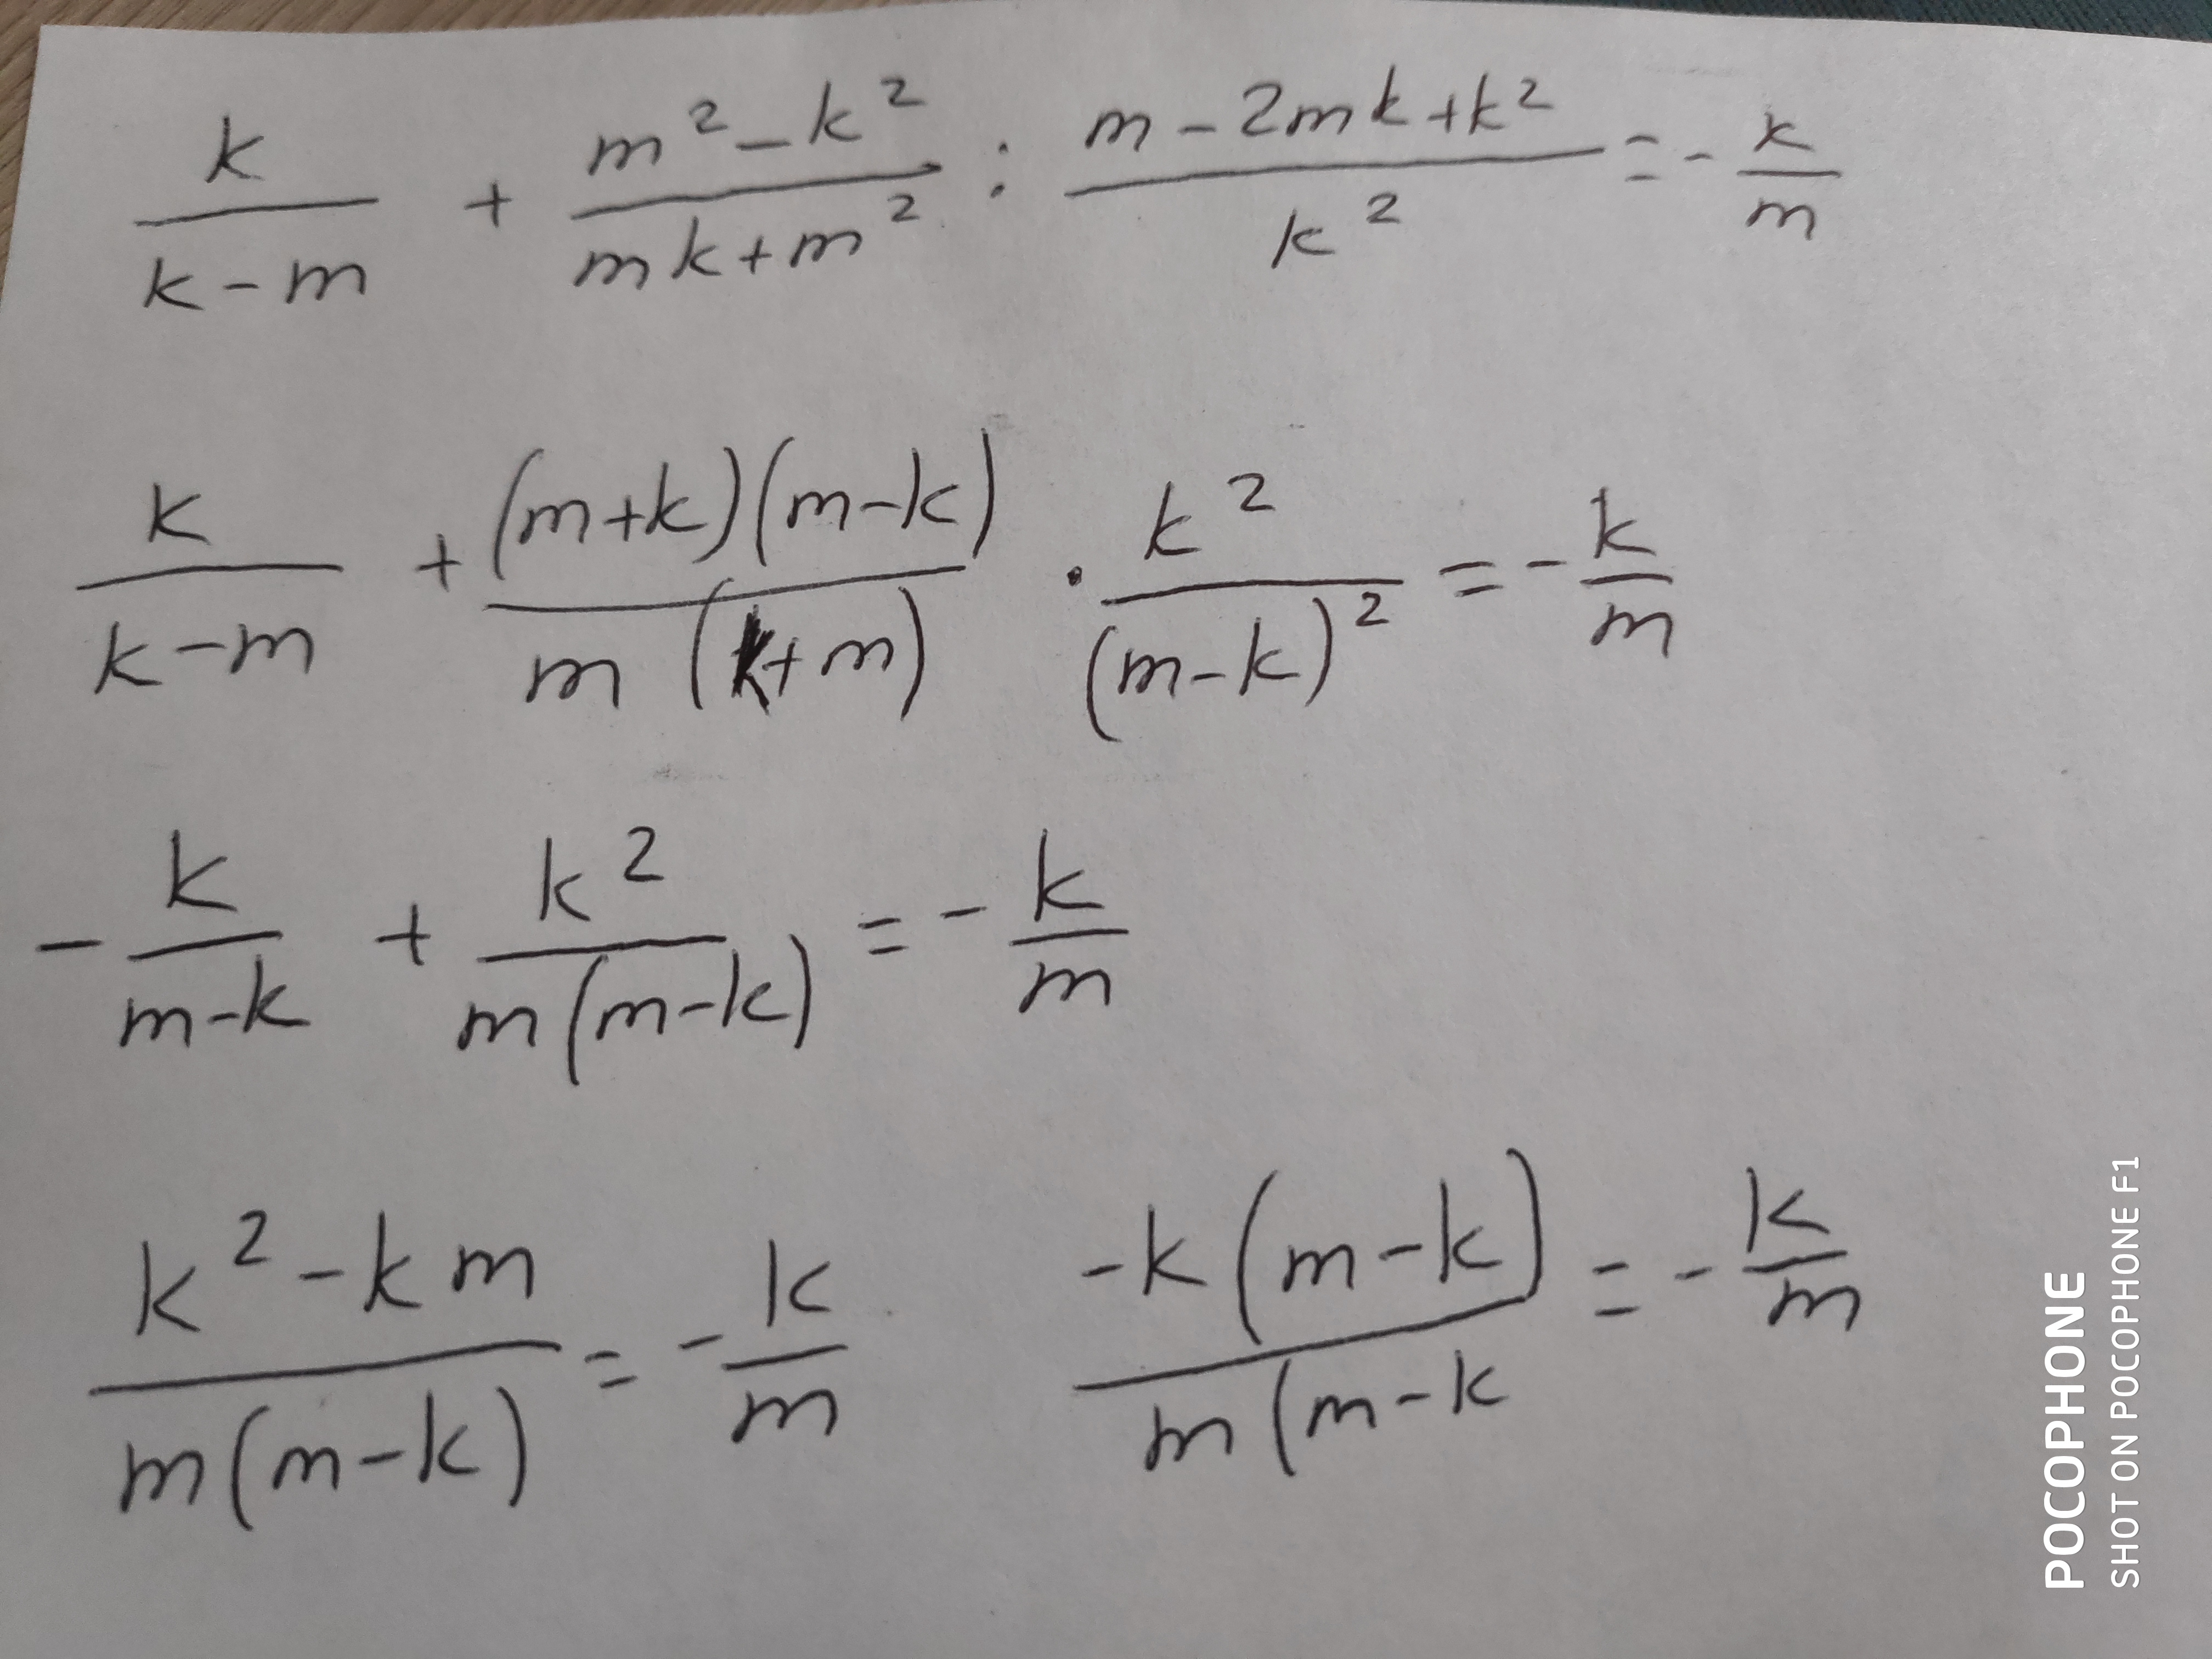 k/(k-m) + (m²-k²)/(mk+m²) : (m-2mk+k²)/k² = -k/m
k/(k-m) + (m+k)(m-k)/(m(k+m)) · k²/(m-k)² = -k/m
-k/(m-k) + k²/(m(m-k)) = -k/m
(k²-km)/(m(m-k)) = -k/m   -k(m-k)/(m(m-k) = -k/m
POCOPHONE
SHOT ON POCOPHONE F1